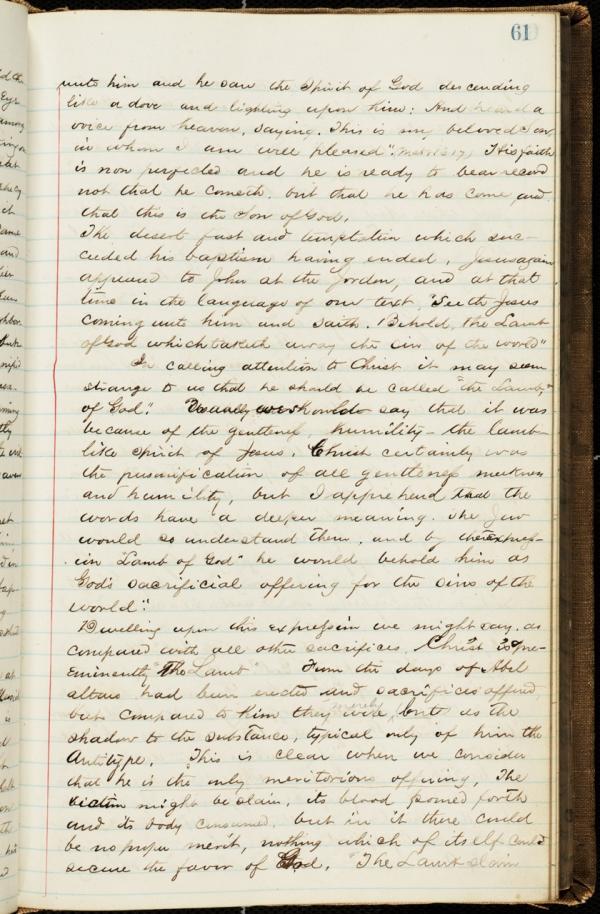 61
unto him and he saw the Spirit of God descending
like a dove and lighting upon him: And heard a
voice from heaven, saying, This is my beloved Son,
in whom I am well pleased". His faith
is now perfected and he is ready to bear record
not that he cometh, but that he has come, and
that this is the Son of God.
The desert fast and temptation which suc-
ceeded his baptism having ended, Jesus again
appeared to John at the Jordan, and at that
time in the language of our text, "Seeth Jesus
coming unto him and saith, Behold, the Lamb
of God which taketh away the sin of the world"
In calling attention to Christ it may seem
strange to us that he should be called "the Lamb,
of God." Usually we should say that it was
because of the gentleness, humility - the lamb-
like spirit of Jesus. Christ certainly was
the personification of all gentleness meekness
and humility, but I apprehend that the
words have a deeper meaning. The Jew
would so understand them, and by the express-
ion "Lamb of God" he would behold him as
God's sacrificial offering for the sins of the
world".
Dwelling upon this expression we might say, as
compared with all other sacrifices, Christ is pre-
eminently "The Lamb" From the days of Abel
altars had been erected and sacrifices offered,
but compared to him they were merely but as the
shadow to the substance, typical only of him the
Antitype. This is clear when we consider
that he is the only meritorious offering, The
victim might be slain, its blood poured forth
and its body consumed, but in it there could
be no proper merit, nothing which of itself could
secure the favor of God. "The Lamb slain